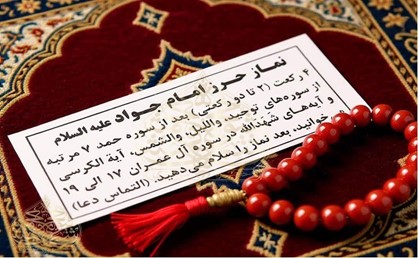 نماز حرز امام جواد علیه السلام
۴ رکعت (۲ تا دو رکعتی) بعد از سوره حمد ۷ مرتبه
از سوره‌های توحید، واللیل، والشمس، آیة الکرسی
و آیه‌های شهدالله در سوره آل عمران ۱۷ الی ۱۹
خوانید، بعد نماز را سلام می‌دهید. (التماس دعا)